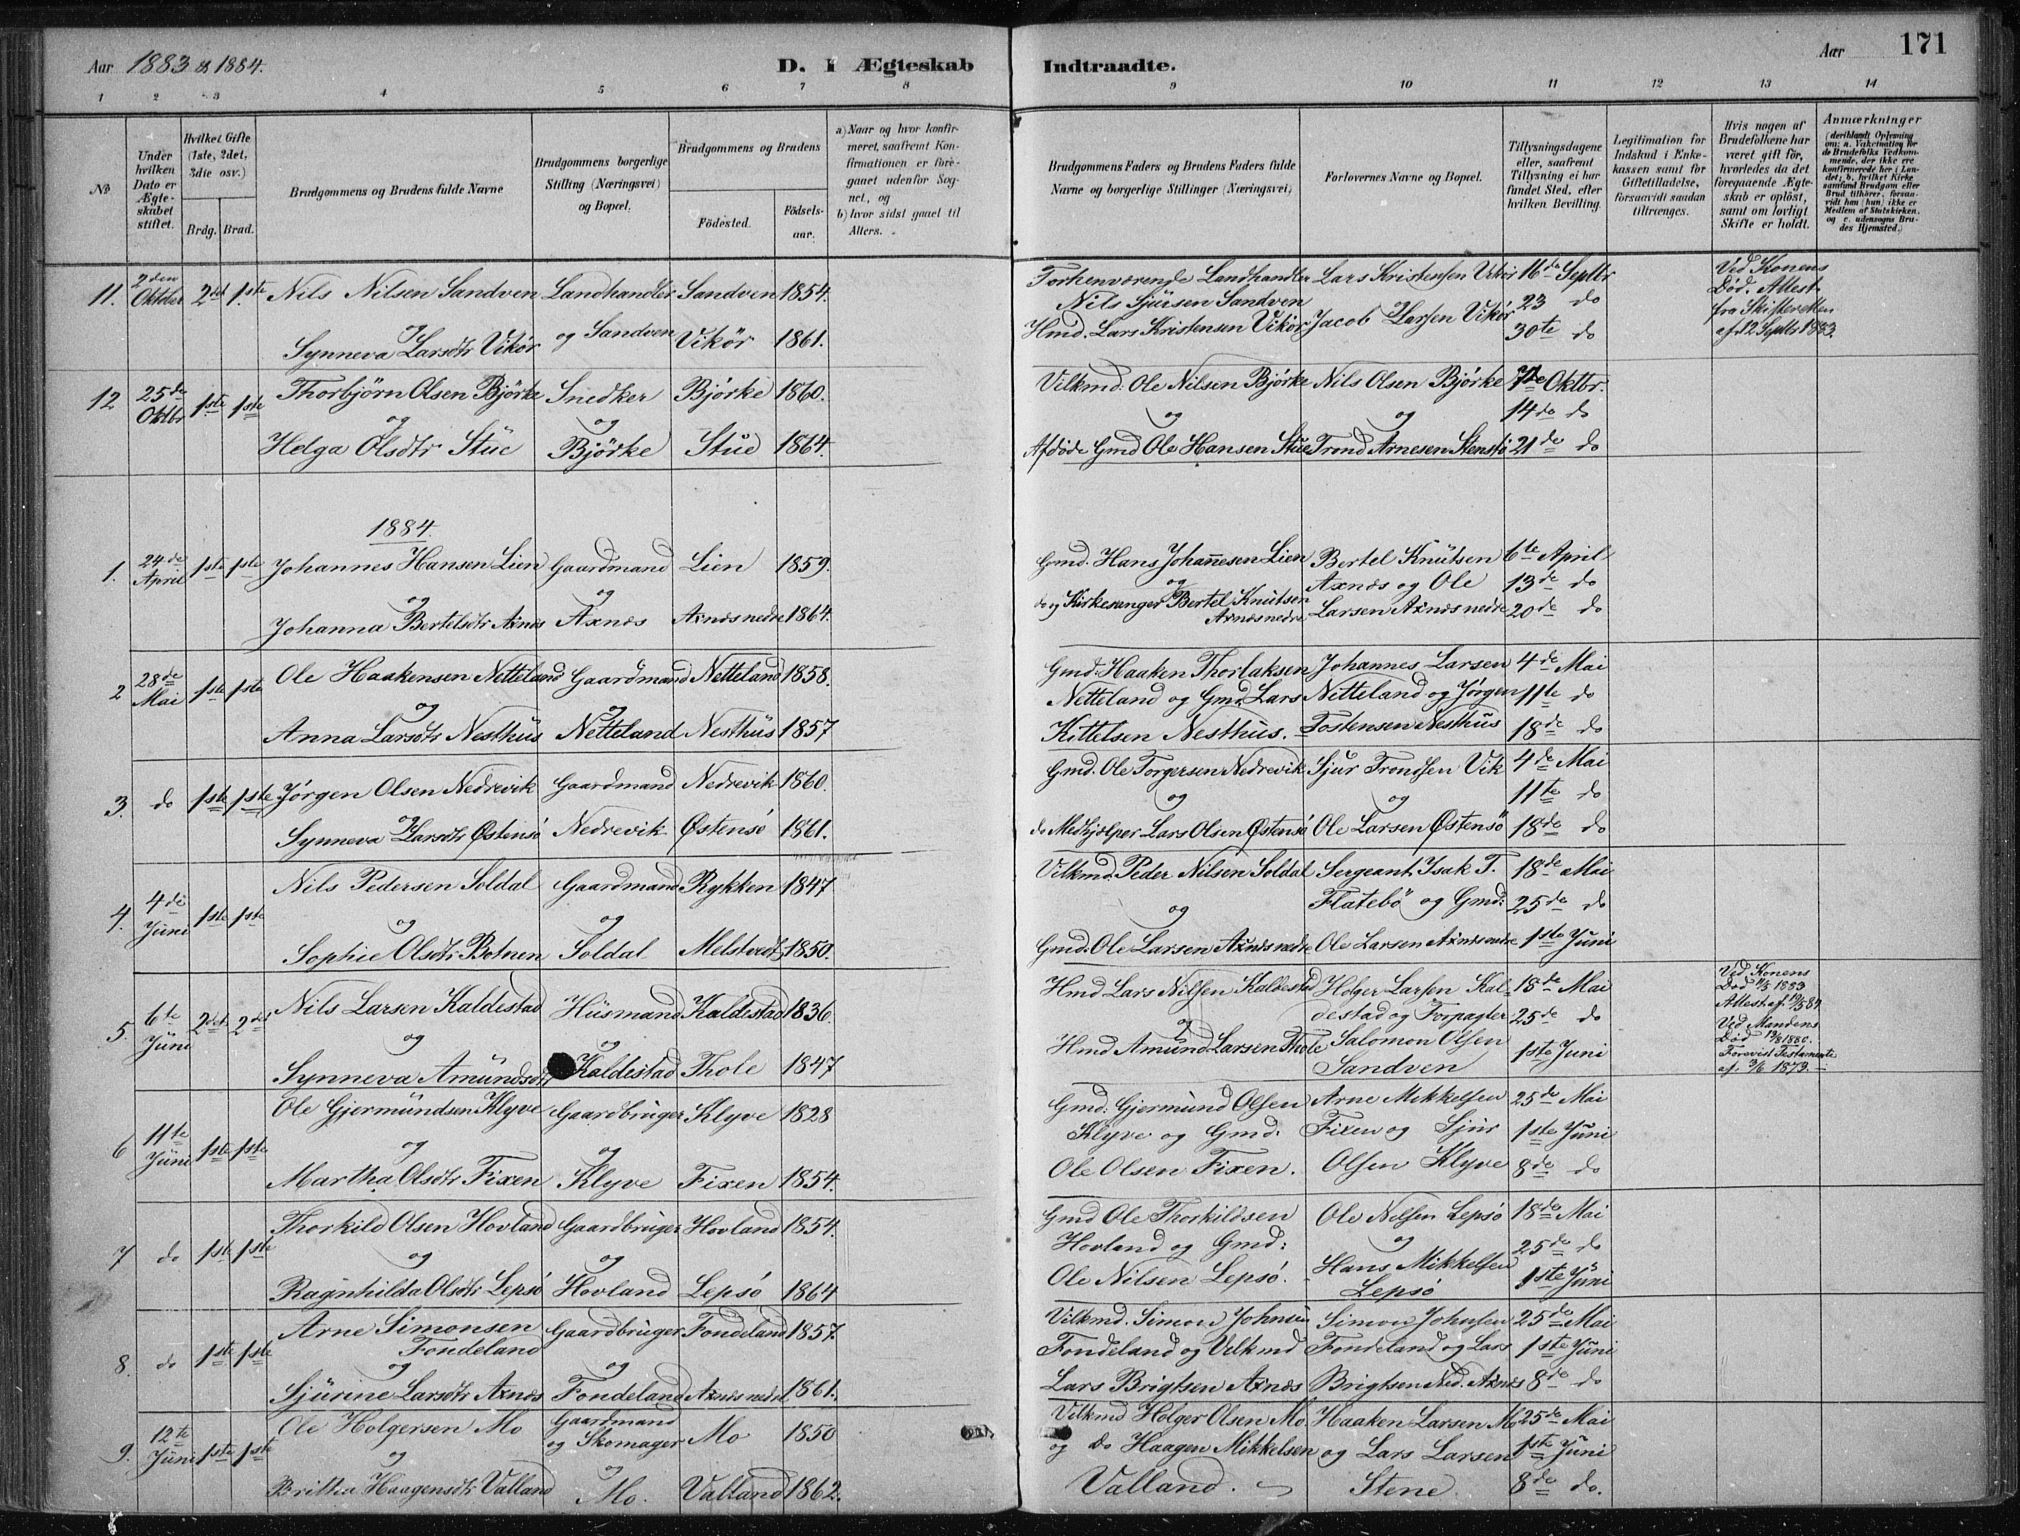 Aar 1883 & 1884.
D. I Ægteskab Indtraadte.
Aar 171
1 2 3 4 5 6 7 8 9 10 11 12 13 14
No
Under hvilken Dato er Ægteskabet stiftet.
Hvilket Gifte (1ste, 2det, 3die osv.)
Brdg. Brud.
Brudgommens og Brudens fulde Navne
Brudgommens borgerlige Stilling (Næringsvei) og Bopæl.
Brudgommens og Brudens
Födested.
Födsels-aar.
a) Naar og hvor konfirmeret, saafremt Konfirmationen er foregaaet udenfor Sognet, og
b) hvor sidst gaaet til Alters.
Brudgommens Faders og Brudens Faders fulde Navne og borgerlige Stillinger (Næringsvei)
Forlovernes Navne og Bopæl.
Tillysningsdagene eller, saafremt Tillysning ei har fundet Sted, efter hvilken Bevilling.
Legitimation for Indskud i Enkekassen samt for Giftetilladelse, forsaavidt saadan tiltrænges.
Hvis nogen af Brudefolkene har været gift för, hvorledes da det foregaaende Ægteskab er oplöst, samt om lovligt Skifte er holdt.
Anmærkninger
(deriblandt Oplysning om: a. Vaccination for de Brudefolks Vedkommende, der ikke ere konfirmerede her i Landet; b. hvilket Kirkesamfund Brudgom eller Brud tilhörer, forsaavidt han (hun) ikke er Medlem af Statskirken, og c. udensogns Brudes Hjemsted.)
11. 2den Oktober 2det 1ste Nils Nilsen Sandven Landhandler Sandven 1854. Forhenværende Landhandler Lars Kristensen Vikör 16de Septbr Ved Konens
Nils Sjursen Sandven 23 do Död. Attest
og og Sandven Hmd. Lars Kristensen Vikör Jacob Larsen Vikör fra Skifteretten
Synneva Larsdtr Vikör Vikör 1861. 30te do af 12 Septbr 1883.
12 25de Oktbr 1ste 1ste Thorbjörn Olsen Björke Snedker Björke 1860. Velkmd. Ole Nilsen Björke Nils Olsen Björke 7de Oktbr.
og og og og 14de do
Helga Olsdtr Stue Björke Stue 1864. Afdöde Gmd Ole Hansen Stue Trond Arnesen Stensö 21de do
1884.
1. 24de April 1ste 1ste Johannes Hansen Lien Gaardmand Lien 1859. Gmd. Hans Johannesen Lien Bertel Knutsen 6te April
og og og Axnæs og Ole 13de do
Johanna Bertelsdtr Axnæs Axnæs Axnæs nedre 1864. do og Kirkesanger Bertel Knutsen Axnæs nedre Larsen Axnæs nedre 20de do
2 28de Mai 1ste 1ste Ole Haakensen Netteland Gaardmand Netteland 1858. Gmd. Haaken Thorlaksen Johannes Larsen 4de Mai
og og Netteland og Gmd. Lars Netteland og Jörgen 11te do
Anna Larsdtr Nesthus Netteland Nesthus 1857 Kittelsen Nesthus. Tostensen Nesthus 18de do
3. do 1ste 1ste Jörgen Olsen Nedrevik Gaardmand Nedrevik 1860. Gmd. Ole Torgersen Nedrevik Sjur Trondsen Vik 4de Mai
og og og 11te do
Synneva Larsdtr Östensö Nedrevik Östensö 1861. do Medhjælper Lars Olsen Östensö Ole Larsen Östensö 18de do
4. 4de Juni 1ste 1ste Nils Pedersen Soldal Gaardmand Rykken 1847 Velkmd. Peder Nilsen Soldal Sergeant Isak T. 18de Mai
og og og Flatebö og Gmd: 25de do
Sophie Olsdtr Botnen Soldal Melstvedt 1850. Gmd. Ole Larsen Axnæs nedre Ole Larsen Axnæs nedre 1ste Juni
5. 6te Juni 2det 2det Nils Larsen Kaldestad Husmand Kaldestad 1836. Hmd Lars Nilsen Kaldestad Holger Larsen Kal- 18de Mai Ved Konens
Död 1883
Attest af
og og og destad og Forpagter 25de do Ved Mandens
Död 1880.
Synneva Amundsdtr Kaldestad Thole 1847 Hmd Amund Larsen Thole Salomon Olsen Sandven 1ste Juni Forevist Testamente
af 3/6 1873.
6 11te Juni 1ste 1ste Ole Gjermundsen Klyve Gaardbruger Klyve 1828 Gmd. Gjermund Olsen Arne Mikkelsen 25de Mai
og og Klyve og Gmd: Fixen og Sjur 1ste Juni
Martha Olsdtr Fixen Klyve Fixen 1854. Ole Olsen Fixen. Olsen Klyve 8de do
7 do 1ste 1ste Thorkild Olsen Hovland Gaardbruger Hovland 1854. Gmd Ole Thorkildsen Ole Nilsen Lepsö 18de Mai
og og Hovland og Gmd: og 25de do
Ragnhilda Olsdtr Lepsö Hovland Lepsö 1864 Ole Nilsen Lepsö. Hans Mikkelsen Lepsö 1ste Juni
8. do 1ste 1ste Arne Simonsen Fondeland Gaardbruger Fondeland 1857. Velkmd. Simon Johnsen Simon Johnsen 25de Mai
og og Fondeland og Velkmd Fondeland og Lars 1ste Juni
Sjurine Larsdtr Axnæs Fondeland Axnæs nedre 1861. Lars Brigtsen Axnæs Brigtsen Ned. Axnæs 8de do
9. 12te Juni 1ste 1ste Ole Holgersen Mo Gaardmand og Skomager Mo 1850 Velkmd Holger Olsen Mo. Haaken Larsen Mo 25de Mai
og og og do Haagen Mikkelsen og Lars Larsen 1ste Juni
Britha Haagensdtr Valland Mo. Valland 1862. Valland. Stene. 8de do.